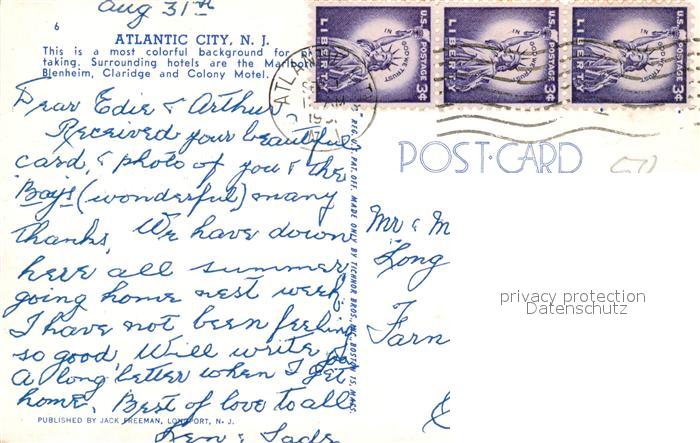 Aug 31st
6
ATLANTIC CITY, N. J.
This is a most colorful background for
taking. Surrounding hotels are the Marlboro
Blenheim, Claridge and Colony Motel.
Dear Edie & Arthur
Received your beautiful
card, & photo of you & the
Boys (wonderful) many
thanks, We have down
here all summer
going home nest week.
I have not been feeling
so good, Will write you
a long letter when I get
home. Best of love to all
PUBLISHED BY JACK FREEMAN, LONGPORT, N. J.
U.S. POSTAGE 3¢
LIBERTY
IN GOD WE TRUST
U.S. POSTAGE 3¢
LIBERTY
IN GOD WE TRUST
U.S. POSTAGE 3¢
LIBERTY
IN GOD WE TRUST
POST CARD
Mr & M
Long
Farn
privacy protection
Datenschutz
REG. U.S. PAT. OFF. MADE ONLY BY TICHNOR BROS. INC., BOSTON 15, MASS.